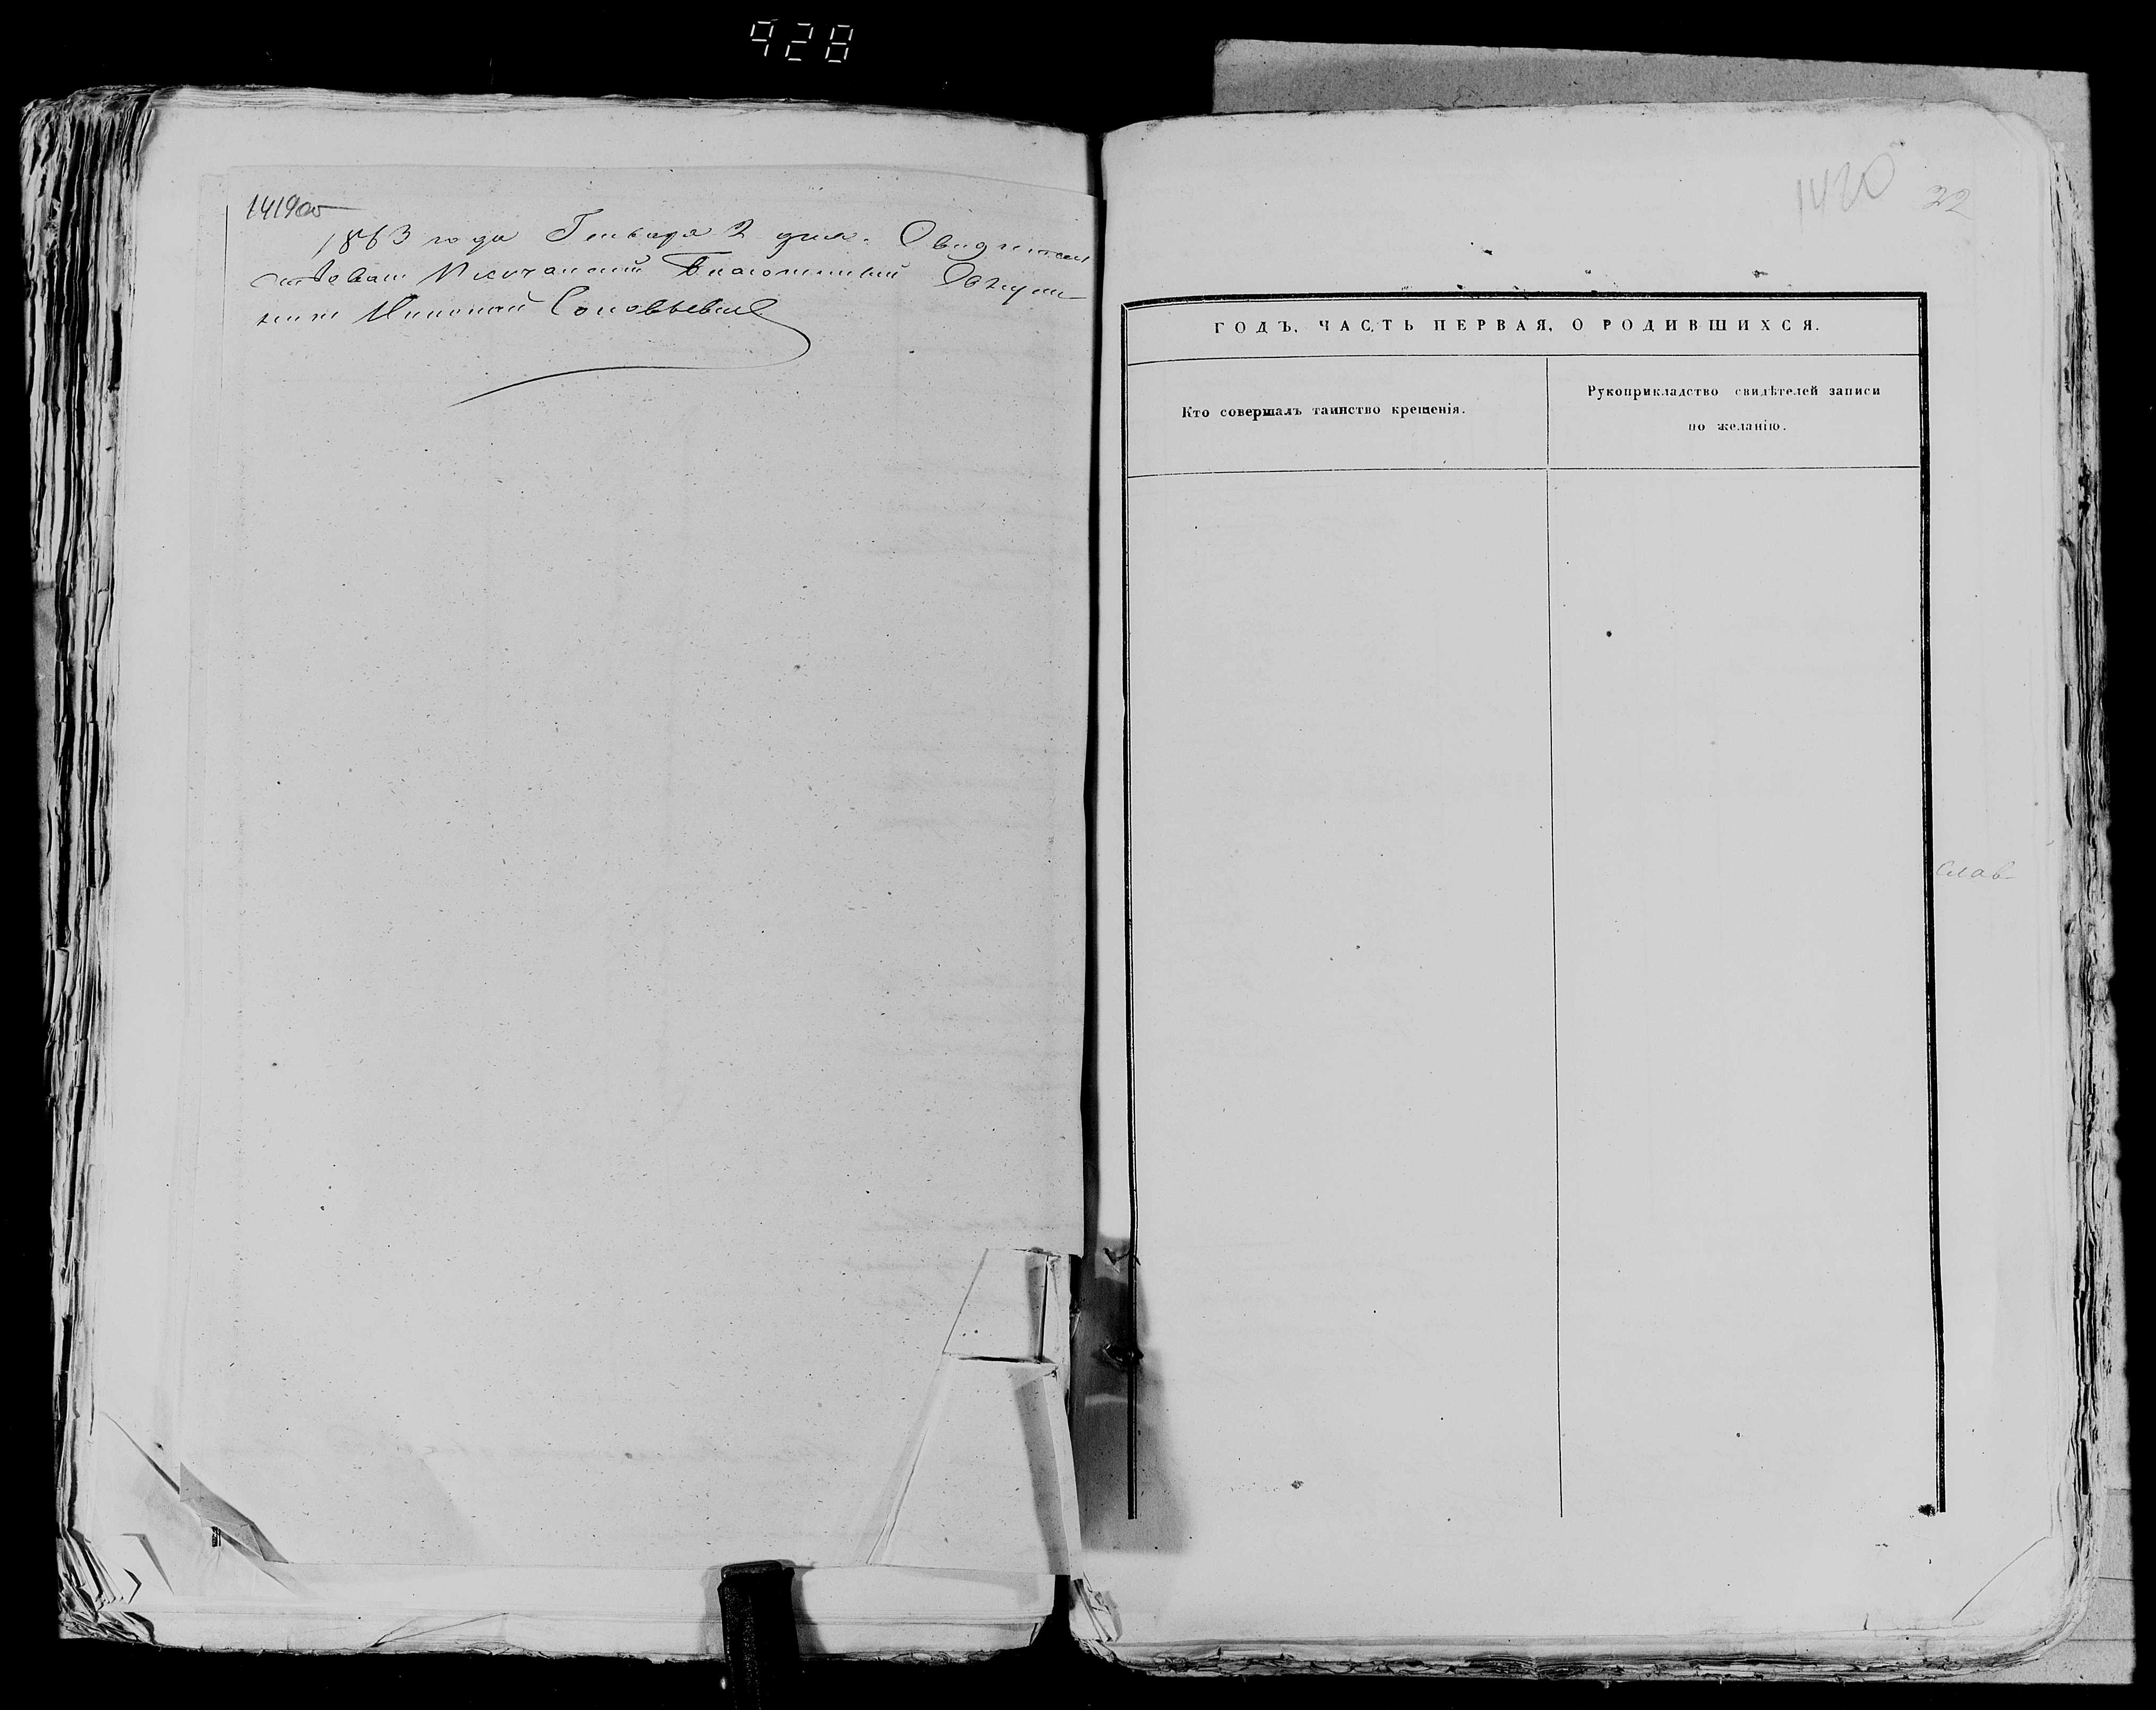 928
1419об
1863 года Генваря 2 дня. Свидѣтель
ствовалъ Благочинный
Николай Соловьевъ
1420 22
ГОДЪ, ЧАСТЬ ПЕРВАЯ, О РОДИВШИХСЯ.
Кто совершалъ таинство крещенія.
Рукоприкладство свидѣтелей записи
по желанію.
слав